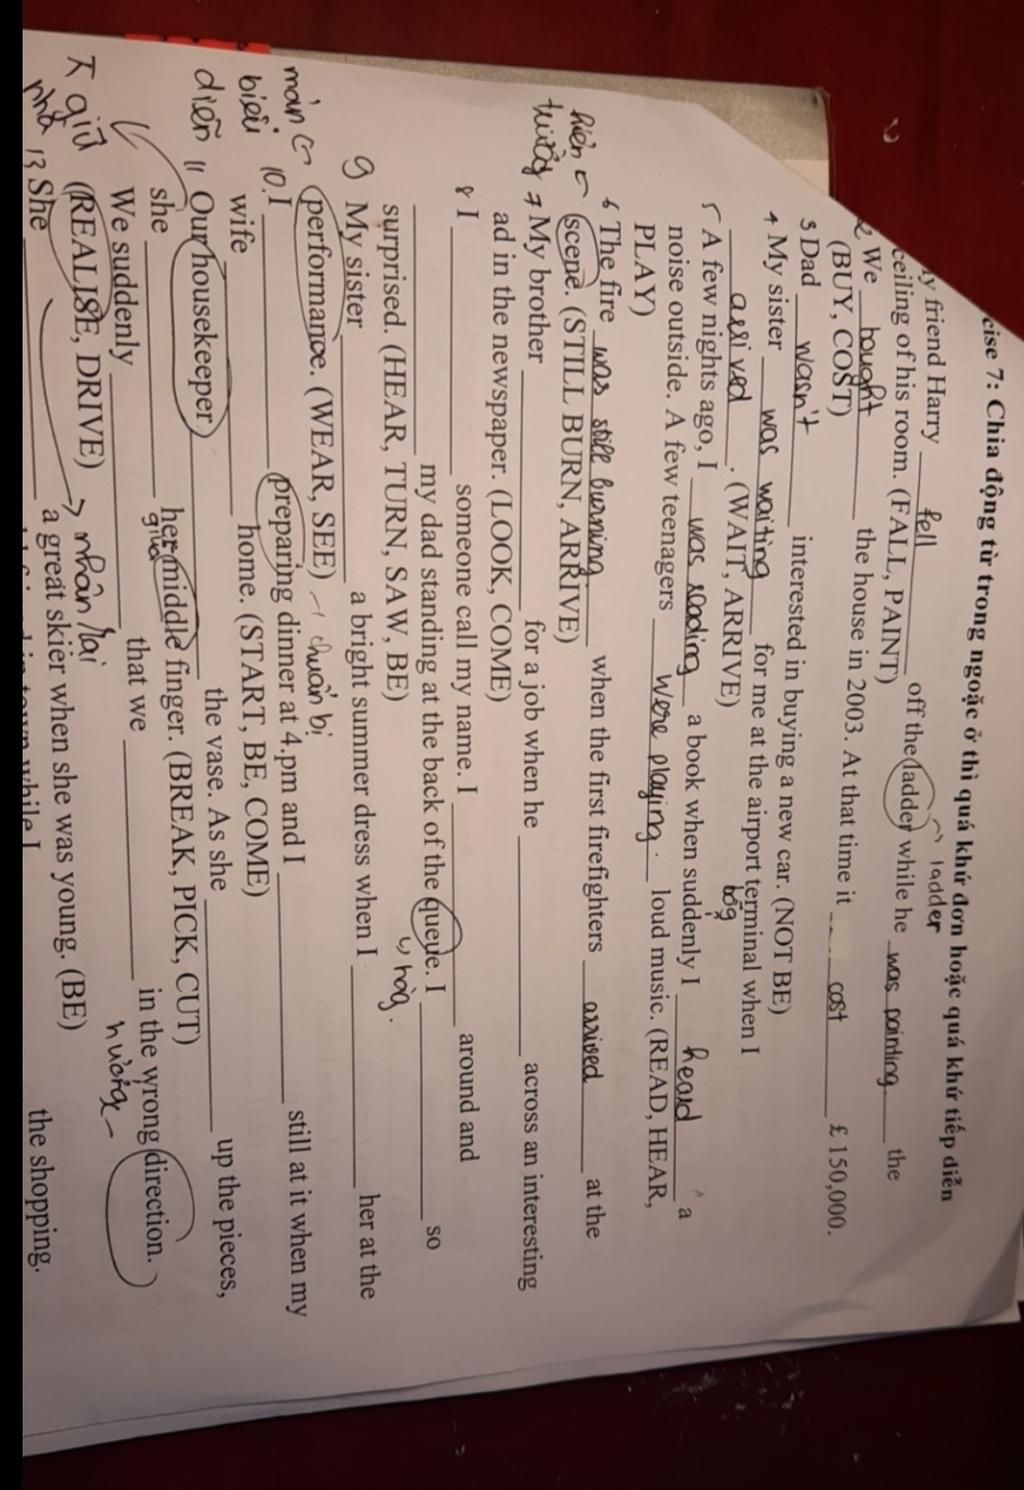 cise 7: Chia động từ trong ngoặc ở thì quá khứ đơn hoặc quá khứ tiếp diễn
ladder
ly friend Harry fell off the ladder while he was painting. the
ceiling of his room. (FALL, PAINT)
2 We bought the house in 2003. At that time it cost £ 150,000.
(BUY, COST)
3 Dad wasn't interested in buying a new car. (NOT BE)
4 My sister was waiting for me at the airport terminal when I
arrived. (WAIT, ARRIVE)
5 A few nights ago, I was reading a book when suddenly I heard a
noise outside. A few teenagers were playing. loud music. (READ, HEAR,
PLAY)
6 The fire was still burning when the first firefighters arrived at the
hiện
scene. (STILL BURN, ARRIVE)
trường
7 My brother ___ for a job when he ___ across an interesting
ad in the newspaper. (LOOK, COME)
8 I ___ someone call my name. I ___ around and
___ my dad standing at the back of the queue. I ___ so
hàng.
surprised. (HEAR, TURN, SAW, BE)
9 My sister ___ a bright summer dress when I ___ her at the
performance. (WEAR, SEE) chuẩn bị
màn
10. I ___ preparing dinner at 4.pm and I ___ still at it when my
biểu
wife ___ home. (START, BE, COME)
diễn
11 Our housekeeper ___ the vase. As she ___ up the pieces,
she ___ her middle finger. (BREAK, PICK, CUT)
giữa
We suddenly ___ that we ___ in the wrong direction.
hướng
giữ (REALISE, DRIVE) nhận lại
nhà
13 She ___ a great skier when she was young. (BE)
town while I ___ the shopping.